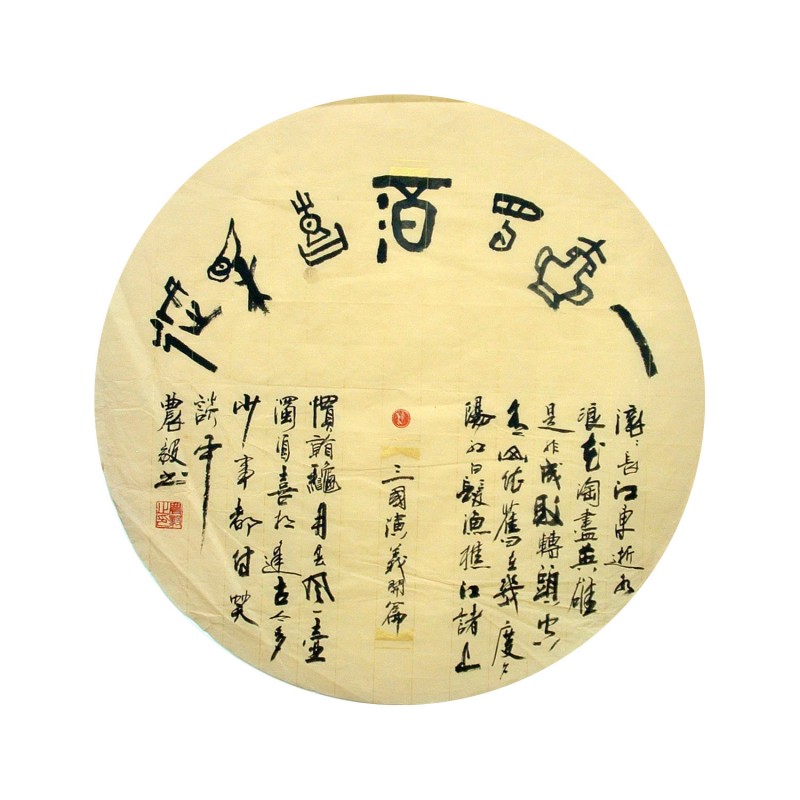 一壺濁酒喜相逢
滾〻長江東逝水
浪花淘盡英雄
是非成敗轉頭空
青山依舊在幾度夕
陽紅白髮漁樵江諸上
三國演義開篇
慣看龝月春風一壺
濁酒喜相逢古今多
少事都付笑
談中
農毅書